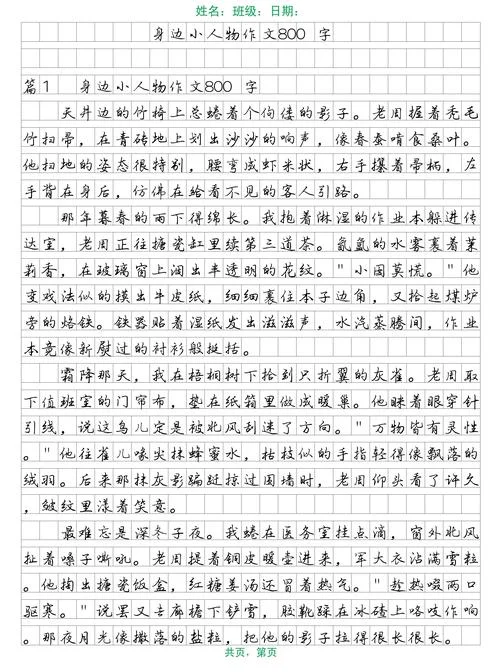 姓名：班级：日期：
身边小人物作文800 字
篇1 身边小人物作文800 字
天井边的竹椅上总蜷着个佝偻的影子。老周握着秃毛
竹扫帚，在青砖地上划出沙沙的响声，像春蚕啃食桑叶。
他扫地的姿态很特别，腰弯成虾米状，右手攥着帚柄，左
手背在身后，仿佛在给看不见的客人引路。
那年暮春的雨下得绵长。我抱着淋湿的作业本躲进传
达室，老周正往搪瓷缸里续第三道茶。氤氲的水雾裹着茉
莉香，在玻璃窗上洇出半透明的花纹。"小囡莫慌。"他
变戏法似的摸出牛皮纸，细细裹住本子边角，又拾起煤炉
旁的烙铁。铁器贴着湿纸发出滋滋声，水汽蒸腾间，作业
本竟像新熨过的衬衫般挺括。
霜降那天，我在梧桐树下拾到只折翼的灰雀。老周取
下值班室的门帘布，垫在纸箱里做成暖巢。他眯着眼穿针
引线，说这鸟儿定是被北风刮迷了方向。"万物皆有灵性
。"他往雀儿喙尖抹蜂蜜水，枯枝似的手指轻得像飘落的
绒羽。后来那抹灰影蹁跹掠过围墙时，老周仰头看了许久
，皱纹里漾着笑意。
最难忘是深冬子夜。我蜷在医务室挂点滴，窗外北风
扯着嗓子嘶吼。老周提着铜皮暖壶进来，军大衣沾满雪粒
。他掏出搪瓷饭盒，红糖姜汤还冒着热气。"趁热啜两口
驱寒。"说罢又去廊檐下铲雪，胶靴踩在冰碴上咯吱作响
。那夜月光像撒落的盐粒，把他的影子拉得很长很长。
共页，第页